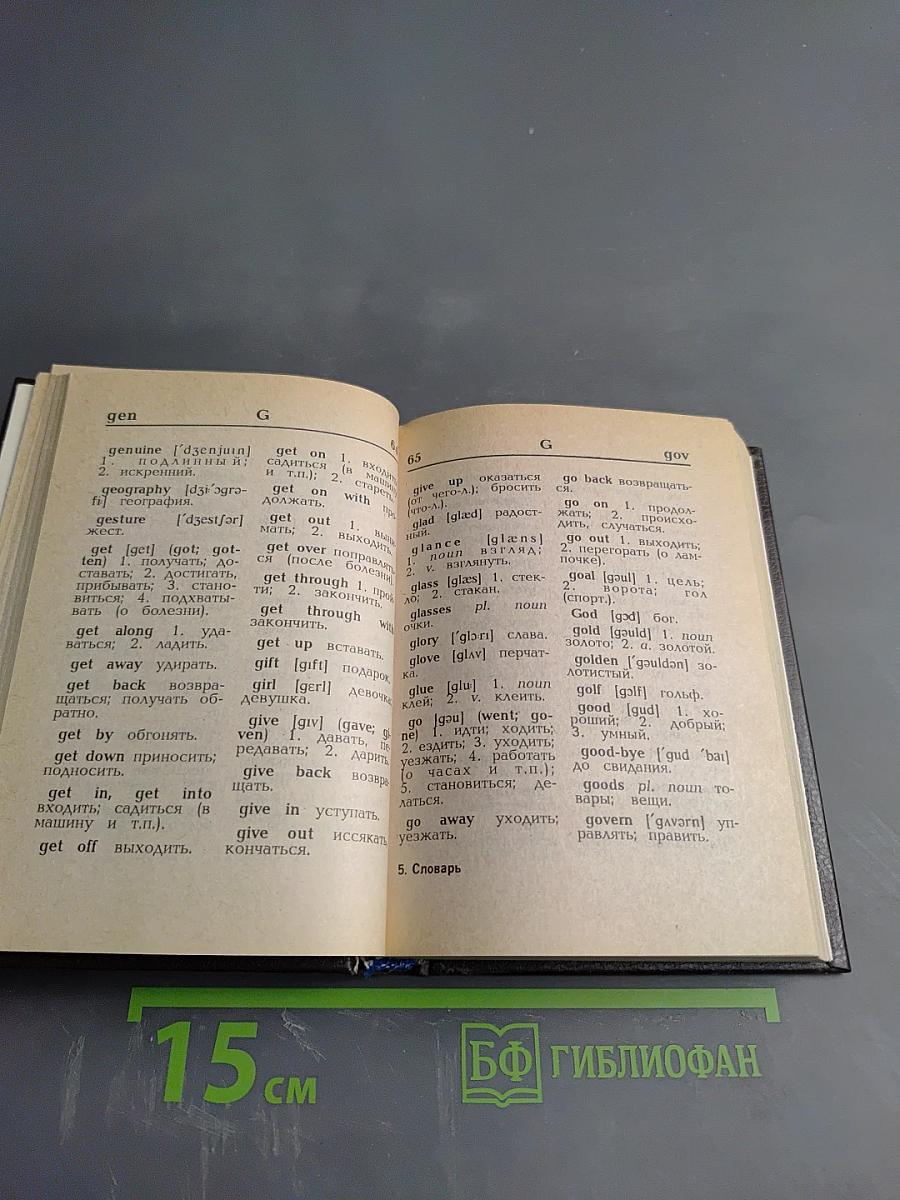 gen G 64
genuine [ˈdʒenjuɪn]
1. подлинный;
2. искренний.
geography [dʒɪˈɔgrə-
fɪ] география.
gesture [ˈdʒestʃər]
жест.
get [get] (got; got-
ten) 1. получать; до-
ставать; 2. достигать,
прибывать; 3. стано-
виться; 4. подхваты-
вать (о болезни).
get along 1. уда-
ваться; 2. ладить.
get away удирать.
get back возвра-
щаться; получать об-
ратно.
get by обгонять.
get down приносить;
подносить.
get in, get into
входить; садиться (в
машину и т.п.).
get off выходить.
get on 1. входить
садиться (в машину
и т.п.); 2. стареть.
get on with про-
должать.
get out 1. выни-
мать; 2. выходить.
get over поправлять-
ся (после болезни).
get through 1. прой-
ти; 2. закончить.
get through with
закончить.
get up вставать.
gift [gɪft] подарок.
girl [gɛrl] девочка
девушка.
give [gɪv] (gave; gi-
ven) 1. давать, пе-
редавать; 2. дарить
give back возвра-
щать.
give in уступать.
give out иссякать
кончаться.
65 G gov
give up оказаться
(от чего-л.); бросить
(что-л.).
glad [glæd] радост-
ный.
glance [glæns]
1. noun взгляд;
2. v. взглянуть.
glass [glæs] 1. стек-
ло; 2. стакан.
glasses pl. noun
очки.
glory [ˈglɔ·rɪ] слава.
glove [glʌv] перчат-
ка.
glue [glu·] 1. noun
клей; 2. v. клеить.
go [gəu] (went; go-
ne) 1. идти; ходить;
2. ездить; 3. уходить;
уезжать; 4. работать
(о часах и т.п.);
5. становиться; де-
латься.
go away уходить;
уезжать.
5. Словарь
go back возвращать-
ся.
go on 1. продол-
жать; 2. происхо-
дить, случаться.
go out 1. выходить;
2. перегорать (о лам-
почке).
goal [gəul] 1. цель;
2. ворота; гол
(спорт.).
God [gɔd] бог.
gold [gəuld] 1. noun
золото; 2. a. золотой.
golden [ˈgəuldən] зо-
лотистый.
golf [gɔlf] гольф.
good [gud] 1. хо-
роший; 2. добрый;
3. умный.
good-bye [ˈgud ˈbaɪ]
до свидания.
goods pl. noun то-
вары; вещи.
govern [ˈgʌvərn] уп-
равлять; править.
15 СМ
БФ ГИБЛИОФАН